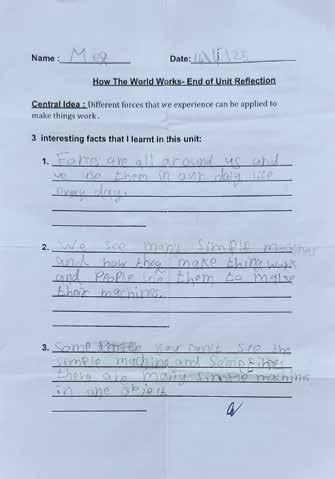 Name : Meg Date:
How The World Works- End of Unit Reflection
Central Idea : Different forces that we experience can be applied to
make things work .
3 interesting facts that I learnt in this unit:
1. Forces are all around us and
we use them in our daily life
every day.
2. We see many simple machines
and how they make thing work
and People use them to make
their machines.
3. Some you can't see the
simple machine and Sometimes
there are many simple machines
in one object